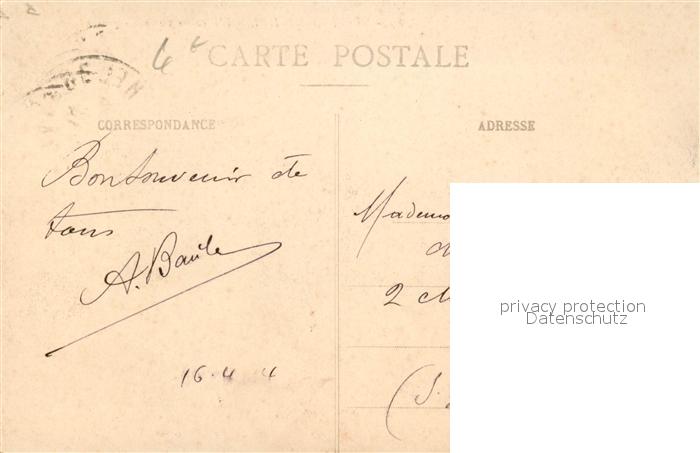 6
CARTE POSTALE
CORRESPONDANCE
ADRESSE
Bon souvenir de
tous
A. Baule
16-4
Mademo
2
(S.
privacy protection
Datenschutz